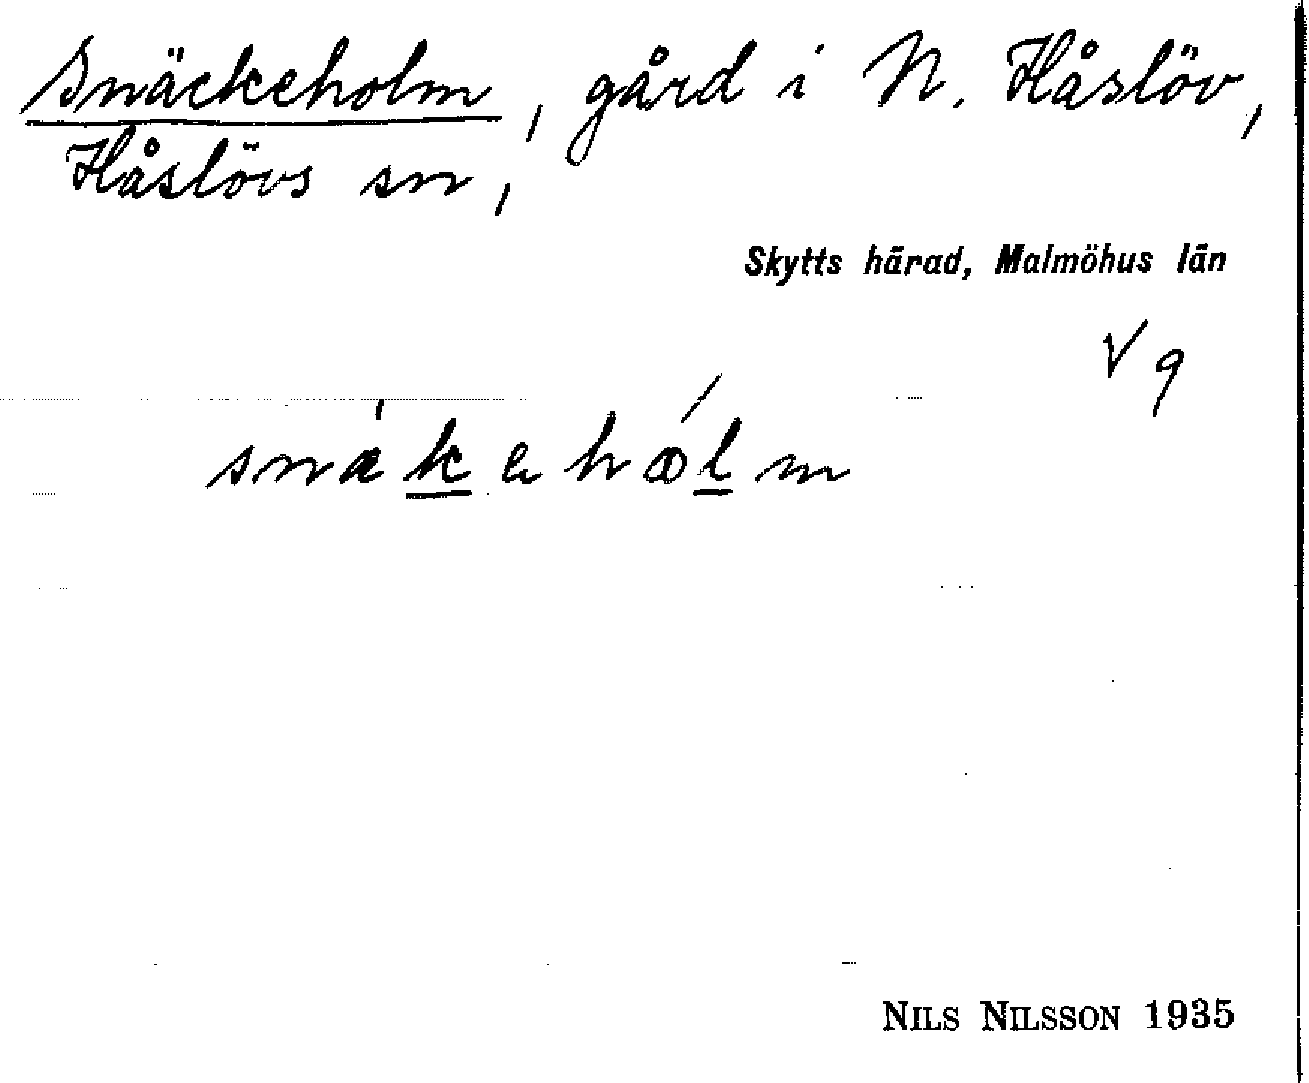 Snäckeholm, gård i N. Håslöv,
Håslövs sn,
Skytts härad, Malmöhus län
V 9
snækehɷlm
NILS NILSSON 1935